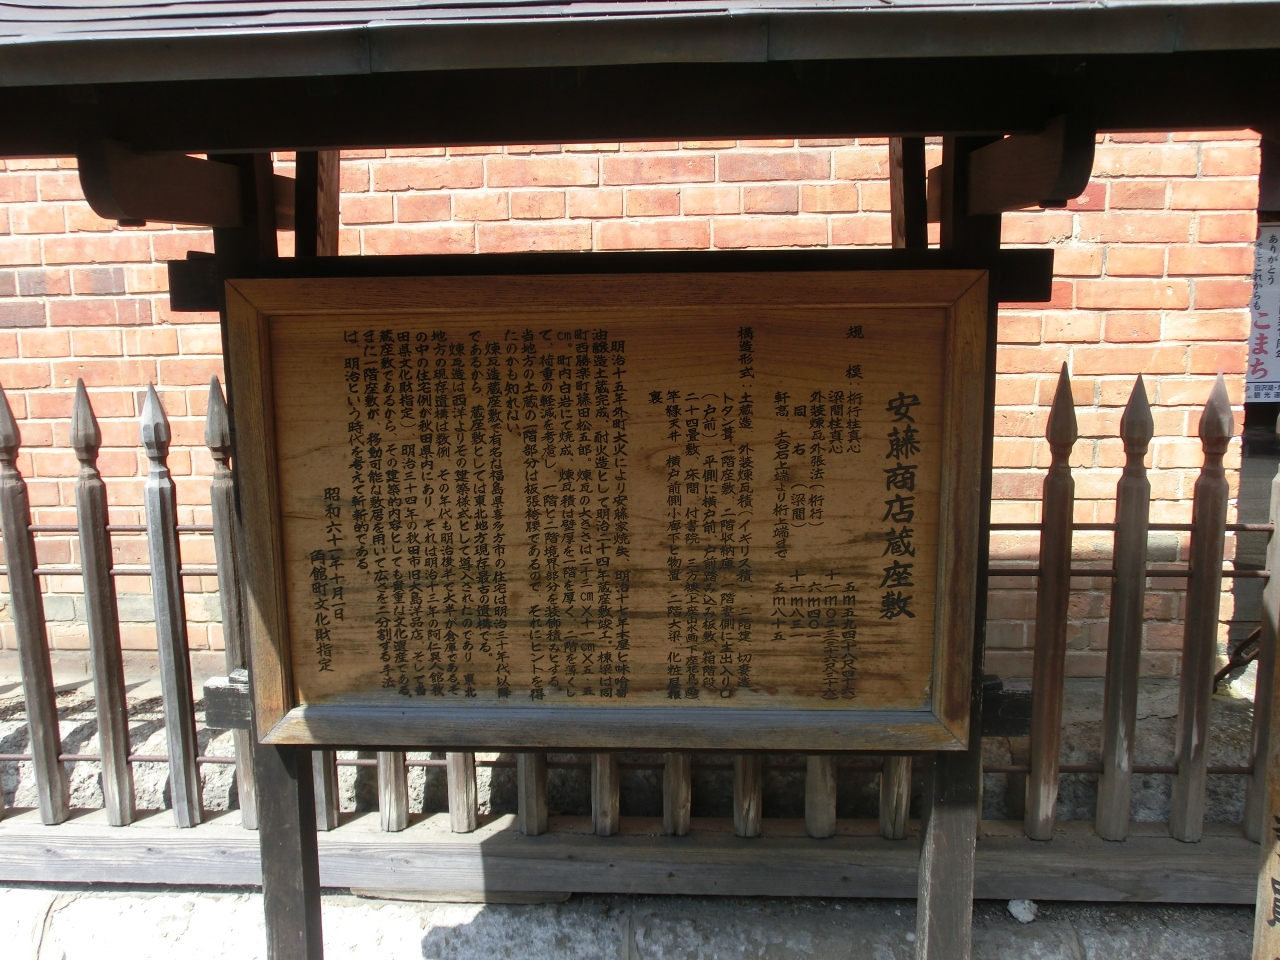 安藤商店蔵座敷
規模：桁行柱真心 五m五九四十八尺四寸六
梁間柱真心 十m〇二三
外装煉瓦外張法（桁行） 六m四〇一
同右（梁間） 十一m八三一
軒高 土台石上端より桁上端まで 五m八十五
構造形式：土蔵造 外装煉瓦積（イギリス積） 二階建 切妻造
トタン葺、一階座敷 二階収納庫 一階妻側に主出入り口
（戸前）平側に横戸前、戸前踏み込み板敷 箱階段
二十四畳敷 床間 付書院 三方襖上座山水画下座花鳥画
竿縁天井 横戸前側小廊下と物置 二階大梁 化粧屋根
裏
明治十五年外町大火により安藤家焼失 明治十七年本屋と味噌醤
油醸造土蔵完成、耐火造として明治二十四年蔵座敷竣工、棟梁は同
町西勝楽町藤田松五郎。煉瓦の大きさは二十三cm×十一cm×五・五
cm。町内白岩にて焼成 煉瓦積は壁厚を一階を厚く、二階を薄くし
て、荷重の軽減を考慮し、一階、二階境界部分を装飾積みとする。
当地方の土蔵の一階部分は板張若腰であるので それにヒントを得
たのかも知れない。
煉瓦造蔵座敷で有名な福島県喜多方市の住宅は明治三十年代以降
であるから、蔵座敷としては東北地方現存最古の遺構である。
煉瓦造は西洋よりその建築様式として導入されたのであり 東北
地方の現存遺構は数例 その年代も明治後半で大半が倉庫である。そ
の中の住宅例が秋田県内にあり、それは明治三十三年の阿仁異人館（秋
田県文化財指定）明治三十四年の秋田市旧大島洋品店、そして当
蔵座敷であるから、その建築的内容としても貴重な文化遺産である。
また一階座敷が、移動可能な敷居を用いて広さを二分割する手法
は、明治という時代を考えて斬新的である。
昭和六十一年十月一日
角館町文化財指定
ありがとう
そしてこれからも
こまち